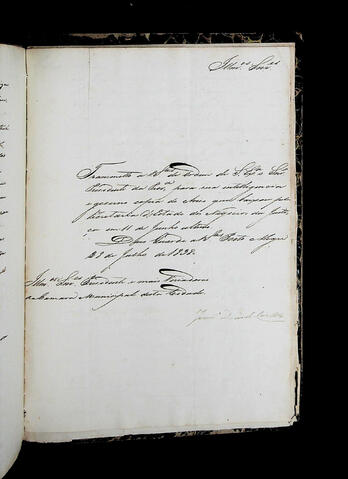 Illmos. Snrs.
Transmitto a Vas. de Ordem de S. Exa. o Snr.
Presidente da Prova. para sua intelligencia
e governo copia do Avizo que baixou pela
Secretaria d'Estado dos Negocios da Justi
ça em 11 de Junho ultimo
Deos Guarde a Vas. Porto Alegre
23 de Julho de 1838.
Illmos. Snres. Presidente e mais Vereadores
da Camara Municipal desta Cidade